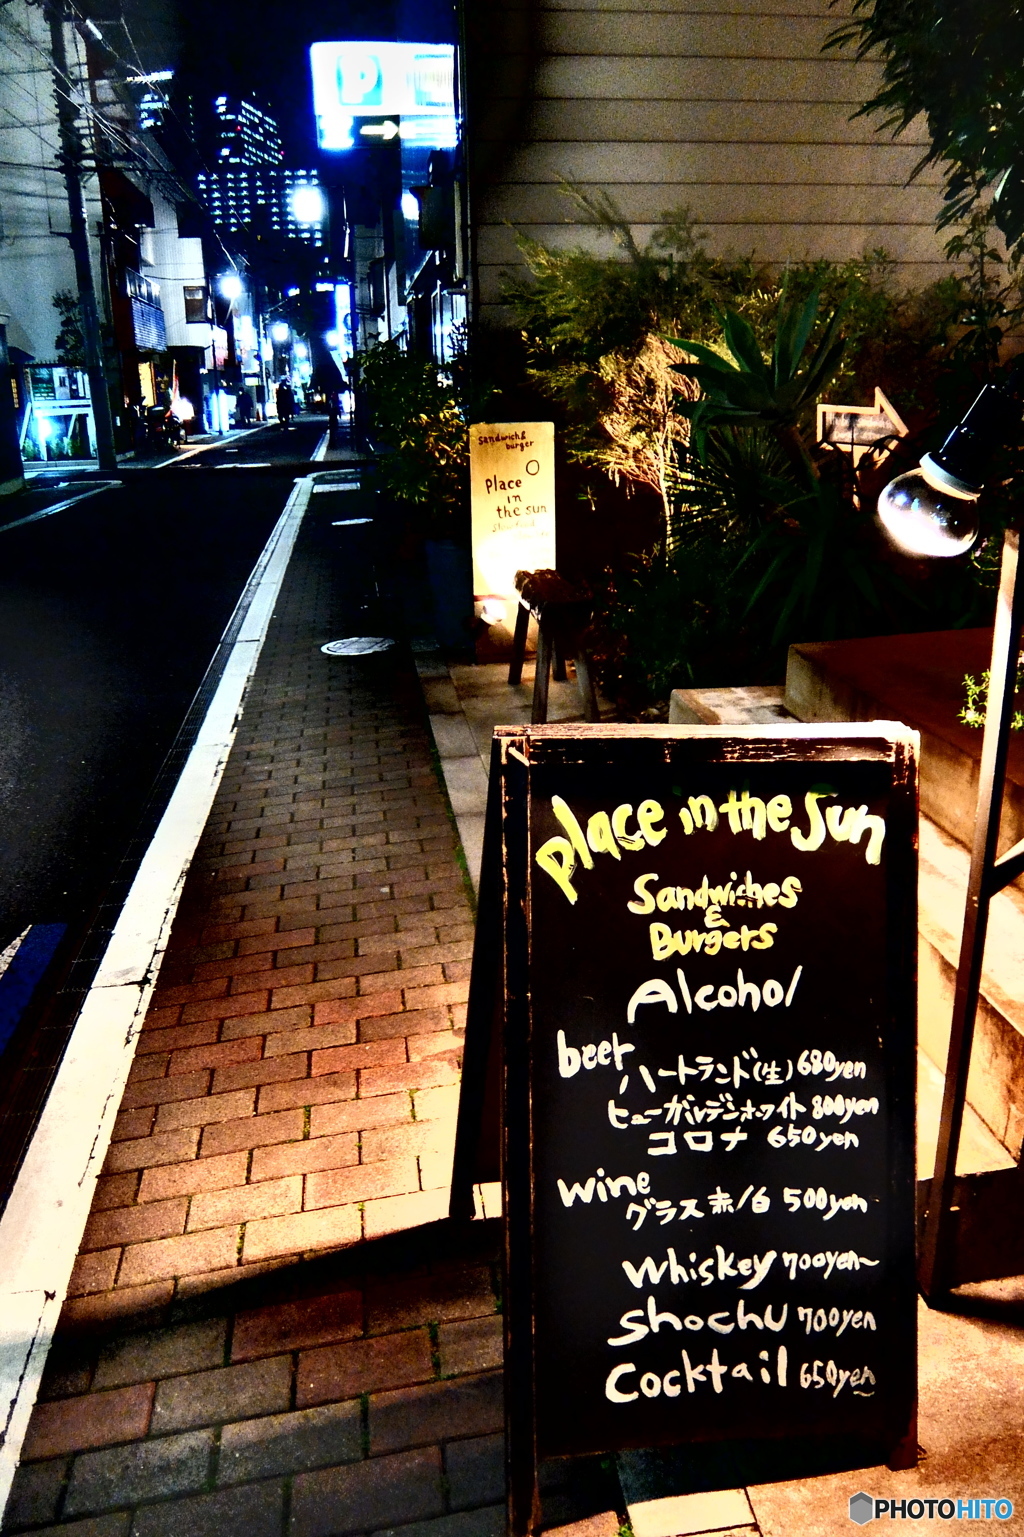 P
→
sandwich&
burger
place
in
the sun
place in the sun
Sandwiches
&
Burgers
Alcohol
beer
ハートランド(生) 680yen
ヒューガルデンホワイト 800yen
コロナ 650yen
wine
グラス 赤/白 500yen
whiskey 700yen~
shochu 700yen
Cocktail 650yen~
PHOTOHITO